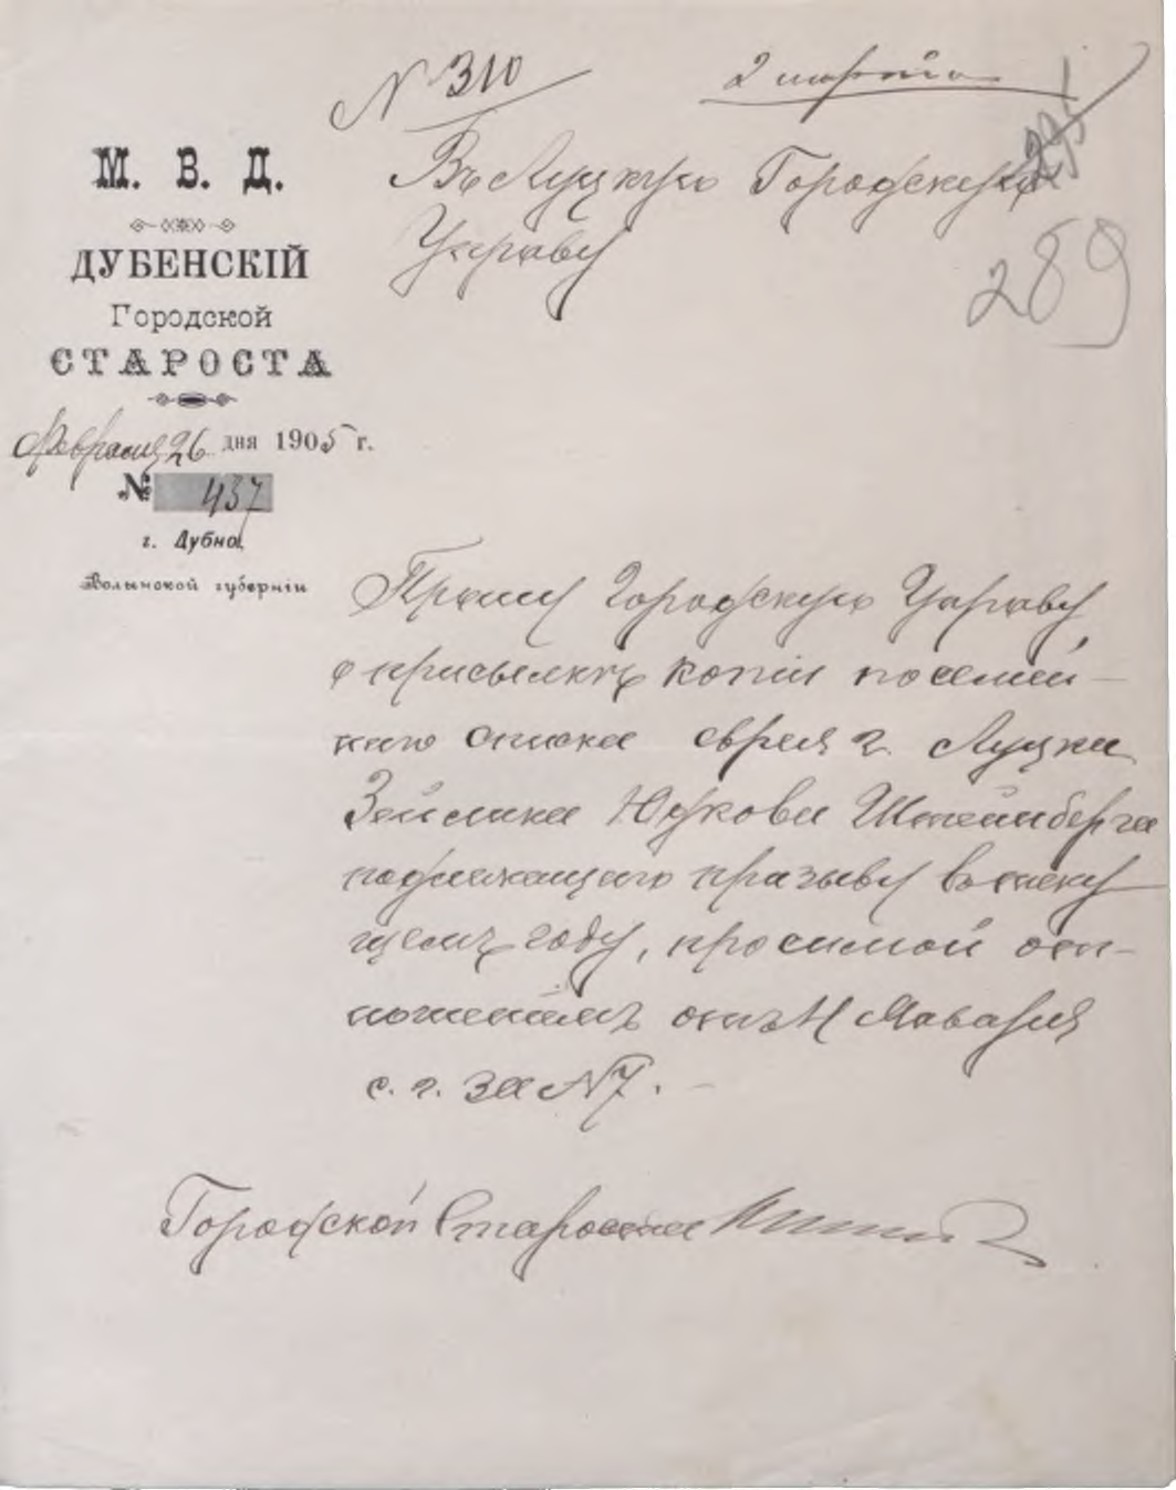 № 310
2 марта
295
289
М. В. Д.
ДУБЕНСКІЙ
Городской
СТАРОСТА
Февраля 26 дня 1905 г.
№ 437
г. Дубно,
Волынской губерніи
Въ Луцкую Городскую
Управу
Прошу Городскую Управу
о присылкѣ копіи посемей-
наго списка еврея г. Луцка
Зейлика Юдкова Штейнберга
подлежащаго призыву въ теку
щемъ году, просимой от-
ношеніемъ отъ Января
с. г. за № 7.
Городской Староста